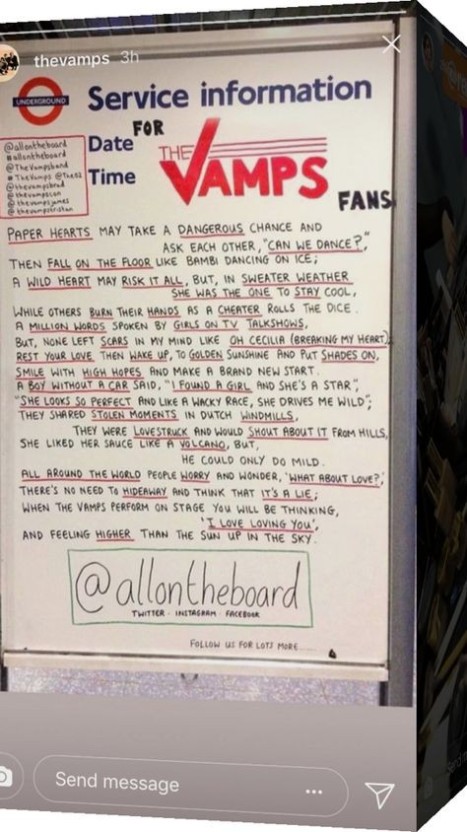 thevamps 3h
UNDERGROUND
Service information
Date FOR
Time
THE VAMPS
FANS
@allontheboard
#allontheboard
@TheVampsband
#TheVamps
@thevampsbrad
@thevampscon
@thevampsjames
@thevampstristan
PAPER HEARTS MAY TAKE A DANGEROUS CHANCE AND
ASK EACH OTHER, "CAN WE DANCE?",
THEN FALL ON THE FLOOR LIKE BAMBI DANCING ON ICE;
A WILD HEART MAY RISK IT ALL, BUT, IN SWEATER WEATHER
SHE WAS THE ONE TO STAY COOL,
WHILE OTHERS BURN THEIR HANDS AS A CHEATER ROLLS THE DICE.
A MILLION WORDS SPOKEN BY GIRLS ON TV TALKSHOWS,
BUT, NONE LEFT SCARS IN MY MIND LIKE OH CECILIA (BREAKING MY HEART).
REST YOUR LOVE THEN WAKE UP, TO GOLDEN SUNSHINE AND PUT SHADES ON,
SMILE WITH HIGH HOPES AND MAKE A BRAND NEW START.
A BOY WITHOUT A CAR SAID, "I FOUND A GIRL AND SHE'S A STAR",
"SHE LOOKS SO PERFECT AND LIKE A WACKY RACE, SHE DRIVES ME WILD";
THEY SHARED STOLEN MOMENTS IN DUTCH WINDMILLS,
THEY WERE LOVESTRUCK AND WOULD SHOUT ABOUT IT FROM HILLS,
SHE LIKED HER SAUCE LIKE A VOLCANO, BUT,
HE COULD ONLY DO MILD.
ALL AROUND THE WORLD PEOPLE WORRY AND WONDER, 'WHAT ABOUT LOVE?',
THERE'S NO NEED TO HIDEAWAY AND THINK THAT IT'S A LIE;
WHEN THE VAMPS PERFORM ON STAGE YOU WILL BE THINKING,
'I LOVE LOVING YOU',
AND FEELING HIGHER THAN THE SUN UP IN THE SKY.
@allontheboard
TWITTER · INSTAGRAM · FACEBOOK
FOLLOW US FOR LOTS MORE
Send message